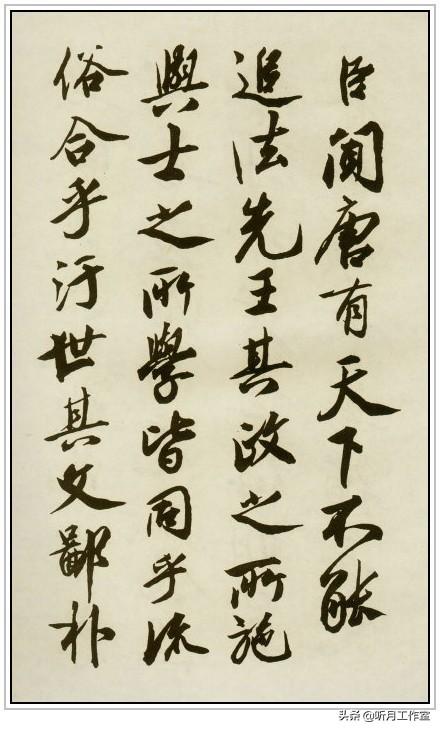 臣聞唐有天下不能
追法先王其政之所施
與士之所學皆同乎流
俗合乎汙世其文鄙朴
头条 @听月工作室